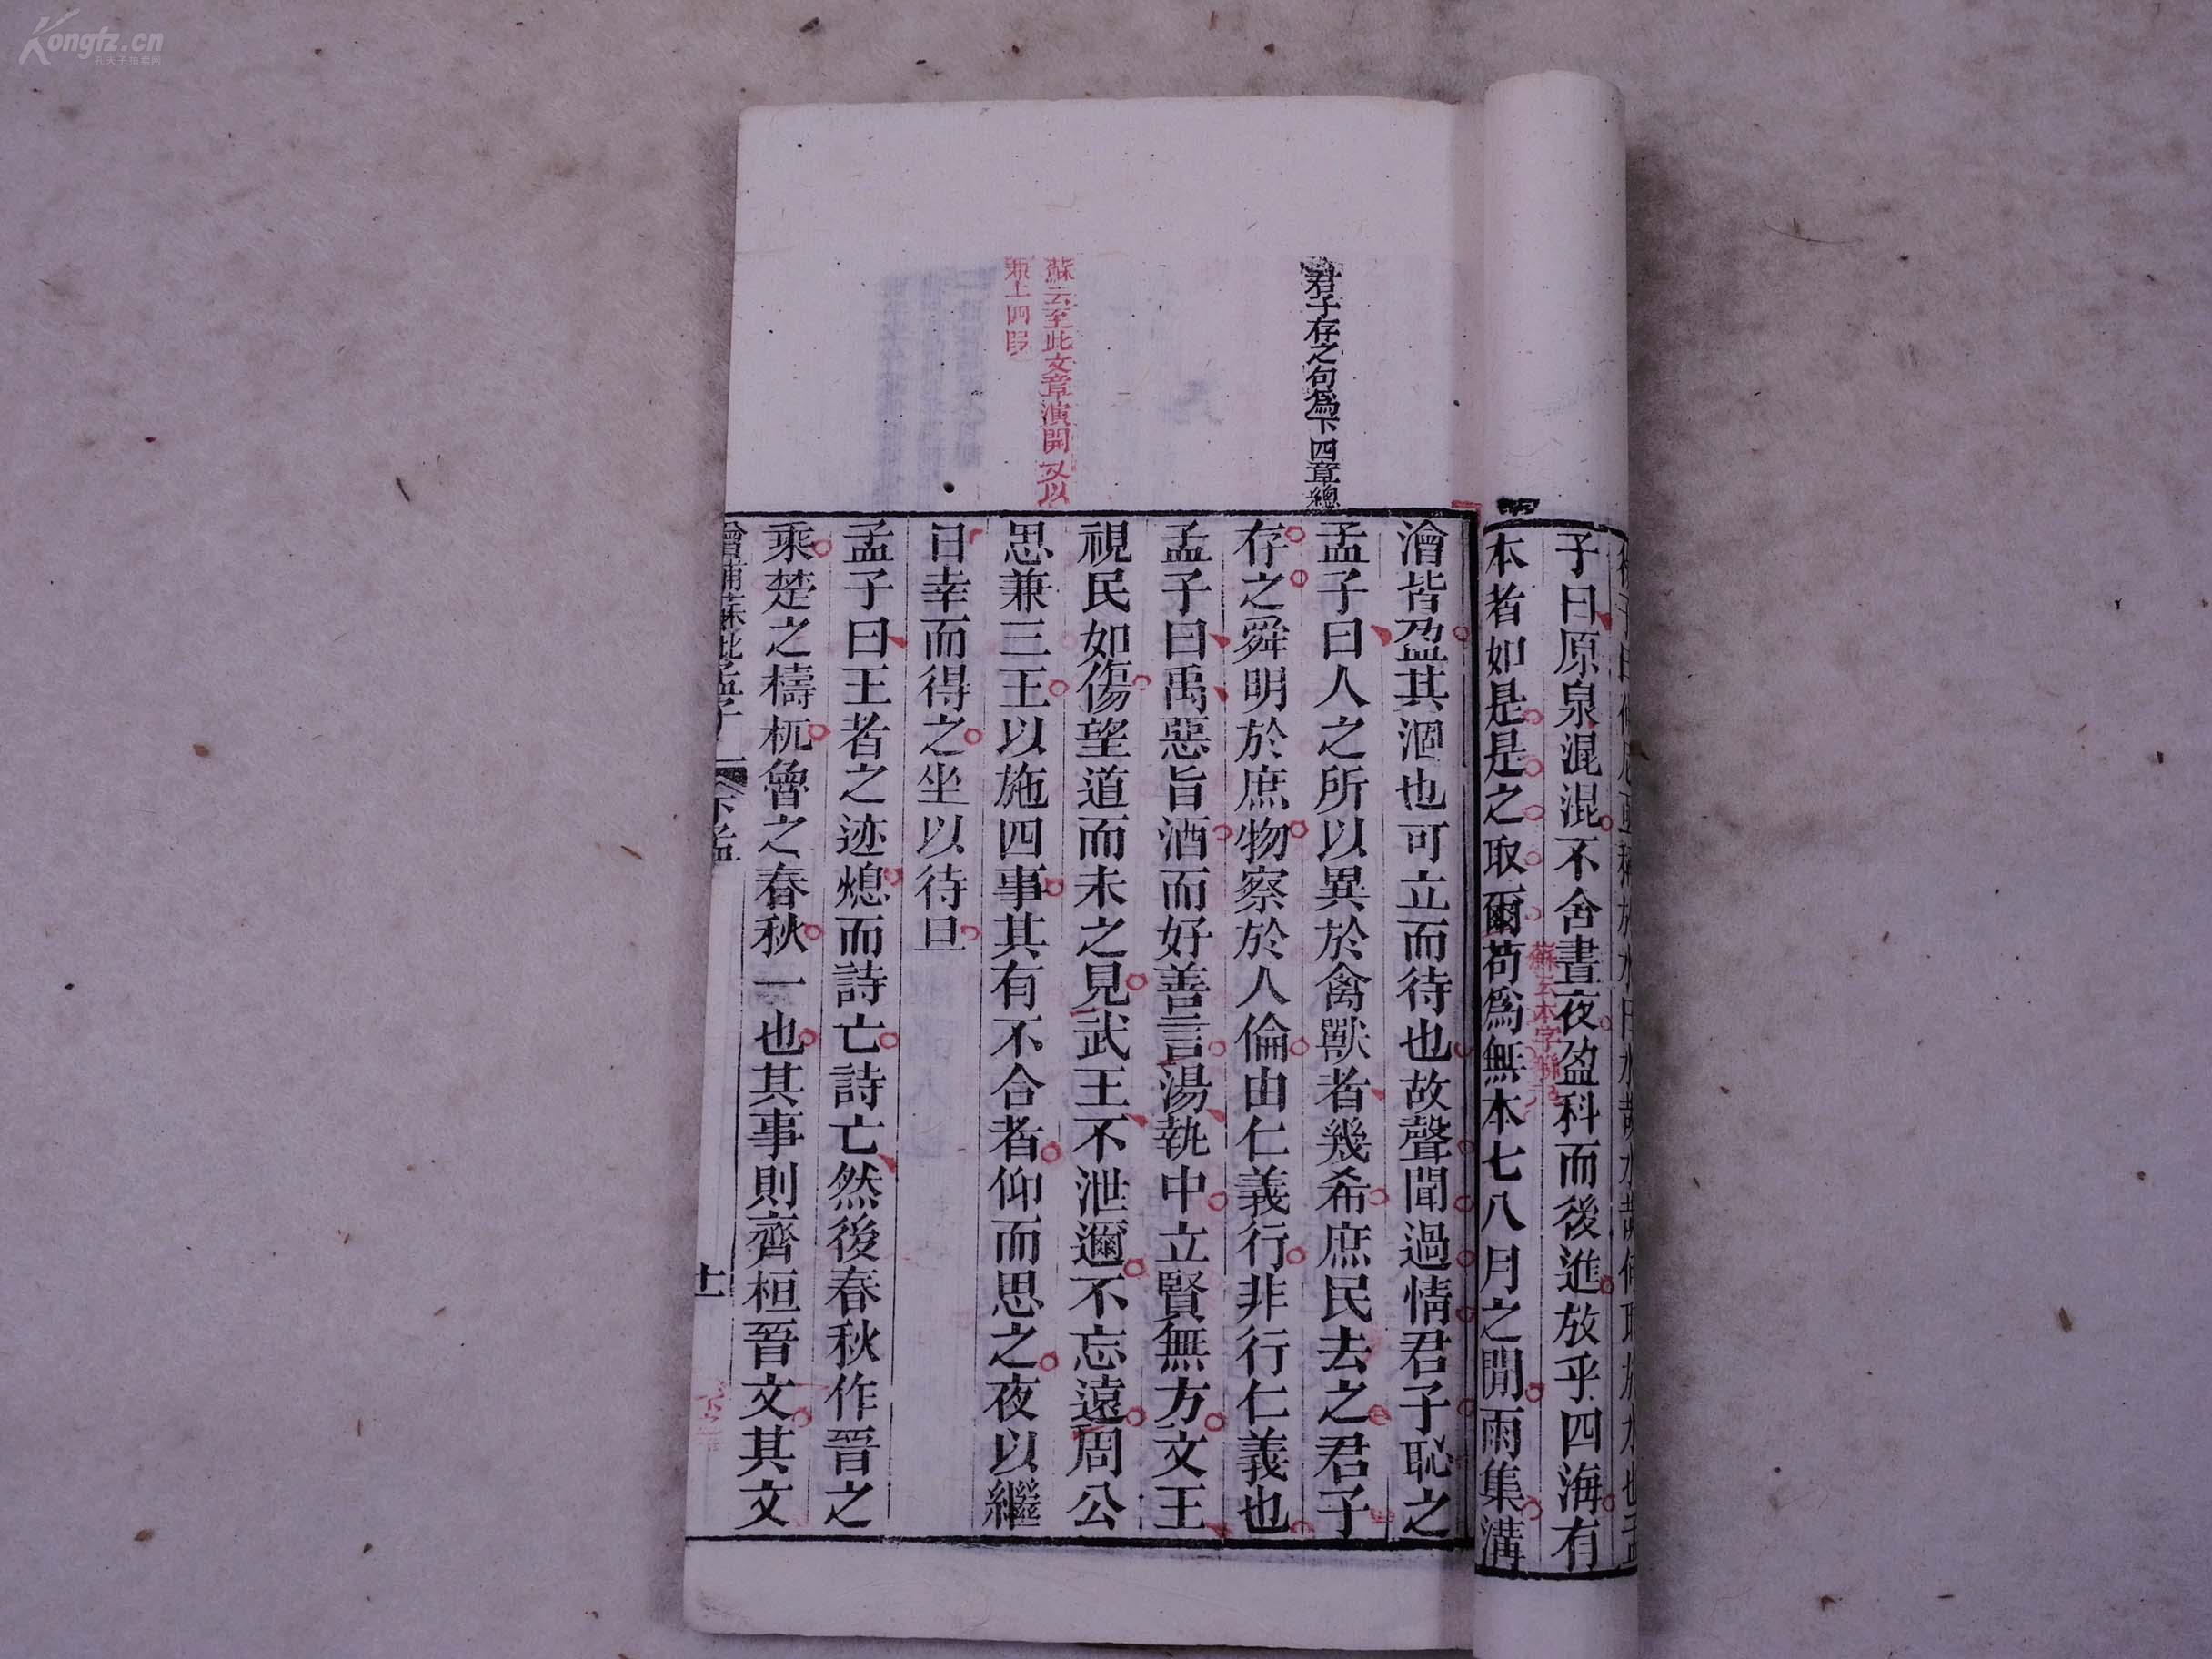 Kongfz.cn
孔夫子拍卖网
子曰原泉混混不舍晝夜盈科而後進放乎四海有
本者如是是之取爾苟爲無本七八月之閒雨集溝
蘇云本字
君子存之句爲下四章總
澮皆盈其涸也可立而待也故聲聞過情君子恥之
孟子曰人之所以異於禽獸者幾希庶民去之君子
存之舜明於庶物察於人倫由仁義行非行仁義也
孟子曰禹惡旨酒而好善言湯執中立賢無方文王
視民如傷望道而未之見武王不泄邇不忘遠周公
蘇云至此文章演開又以
兼上四段
思兼三王以施四事其有不合者仰而思之夜以繼
日幸而得之坐以待旦
孟子曰王者之迹熄而詩亡詩亡然後春秋作晉之
乘楚之檮杌魯之春秋一也其事則齊桓晉文其文
增補蘇批孟子
下孟
十一